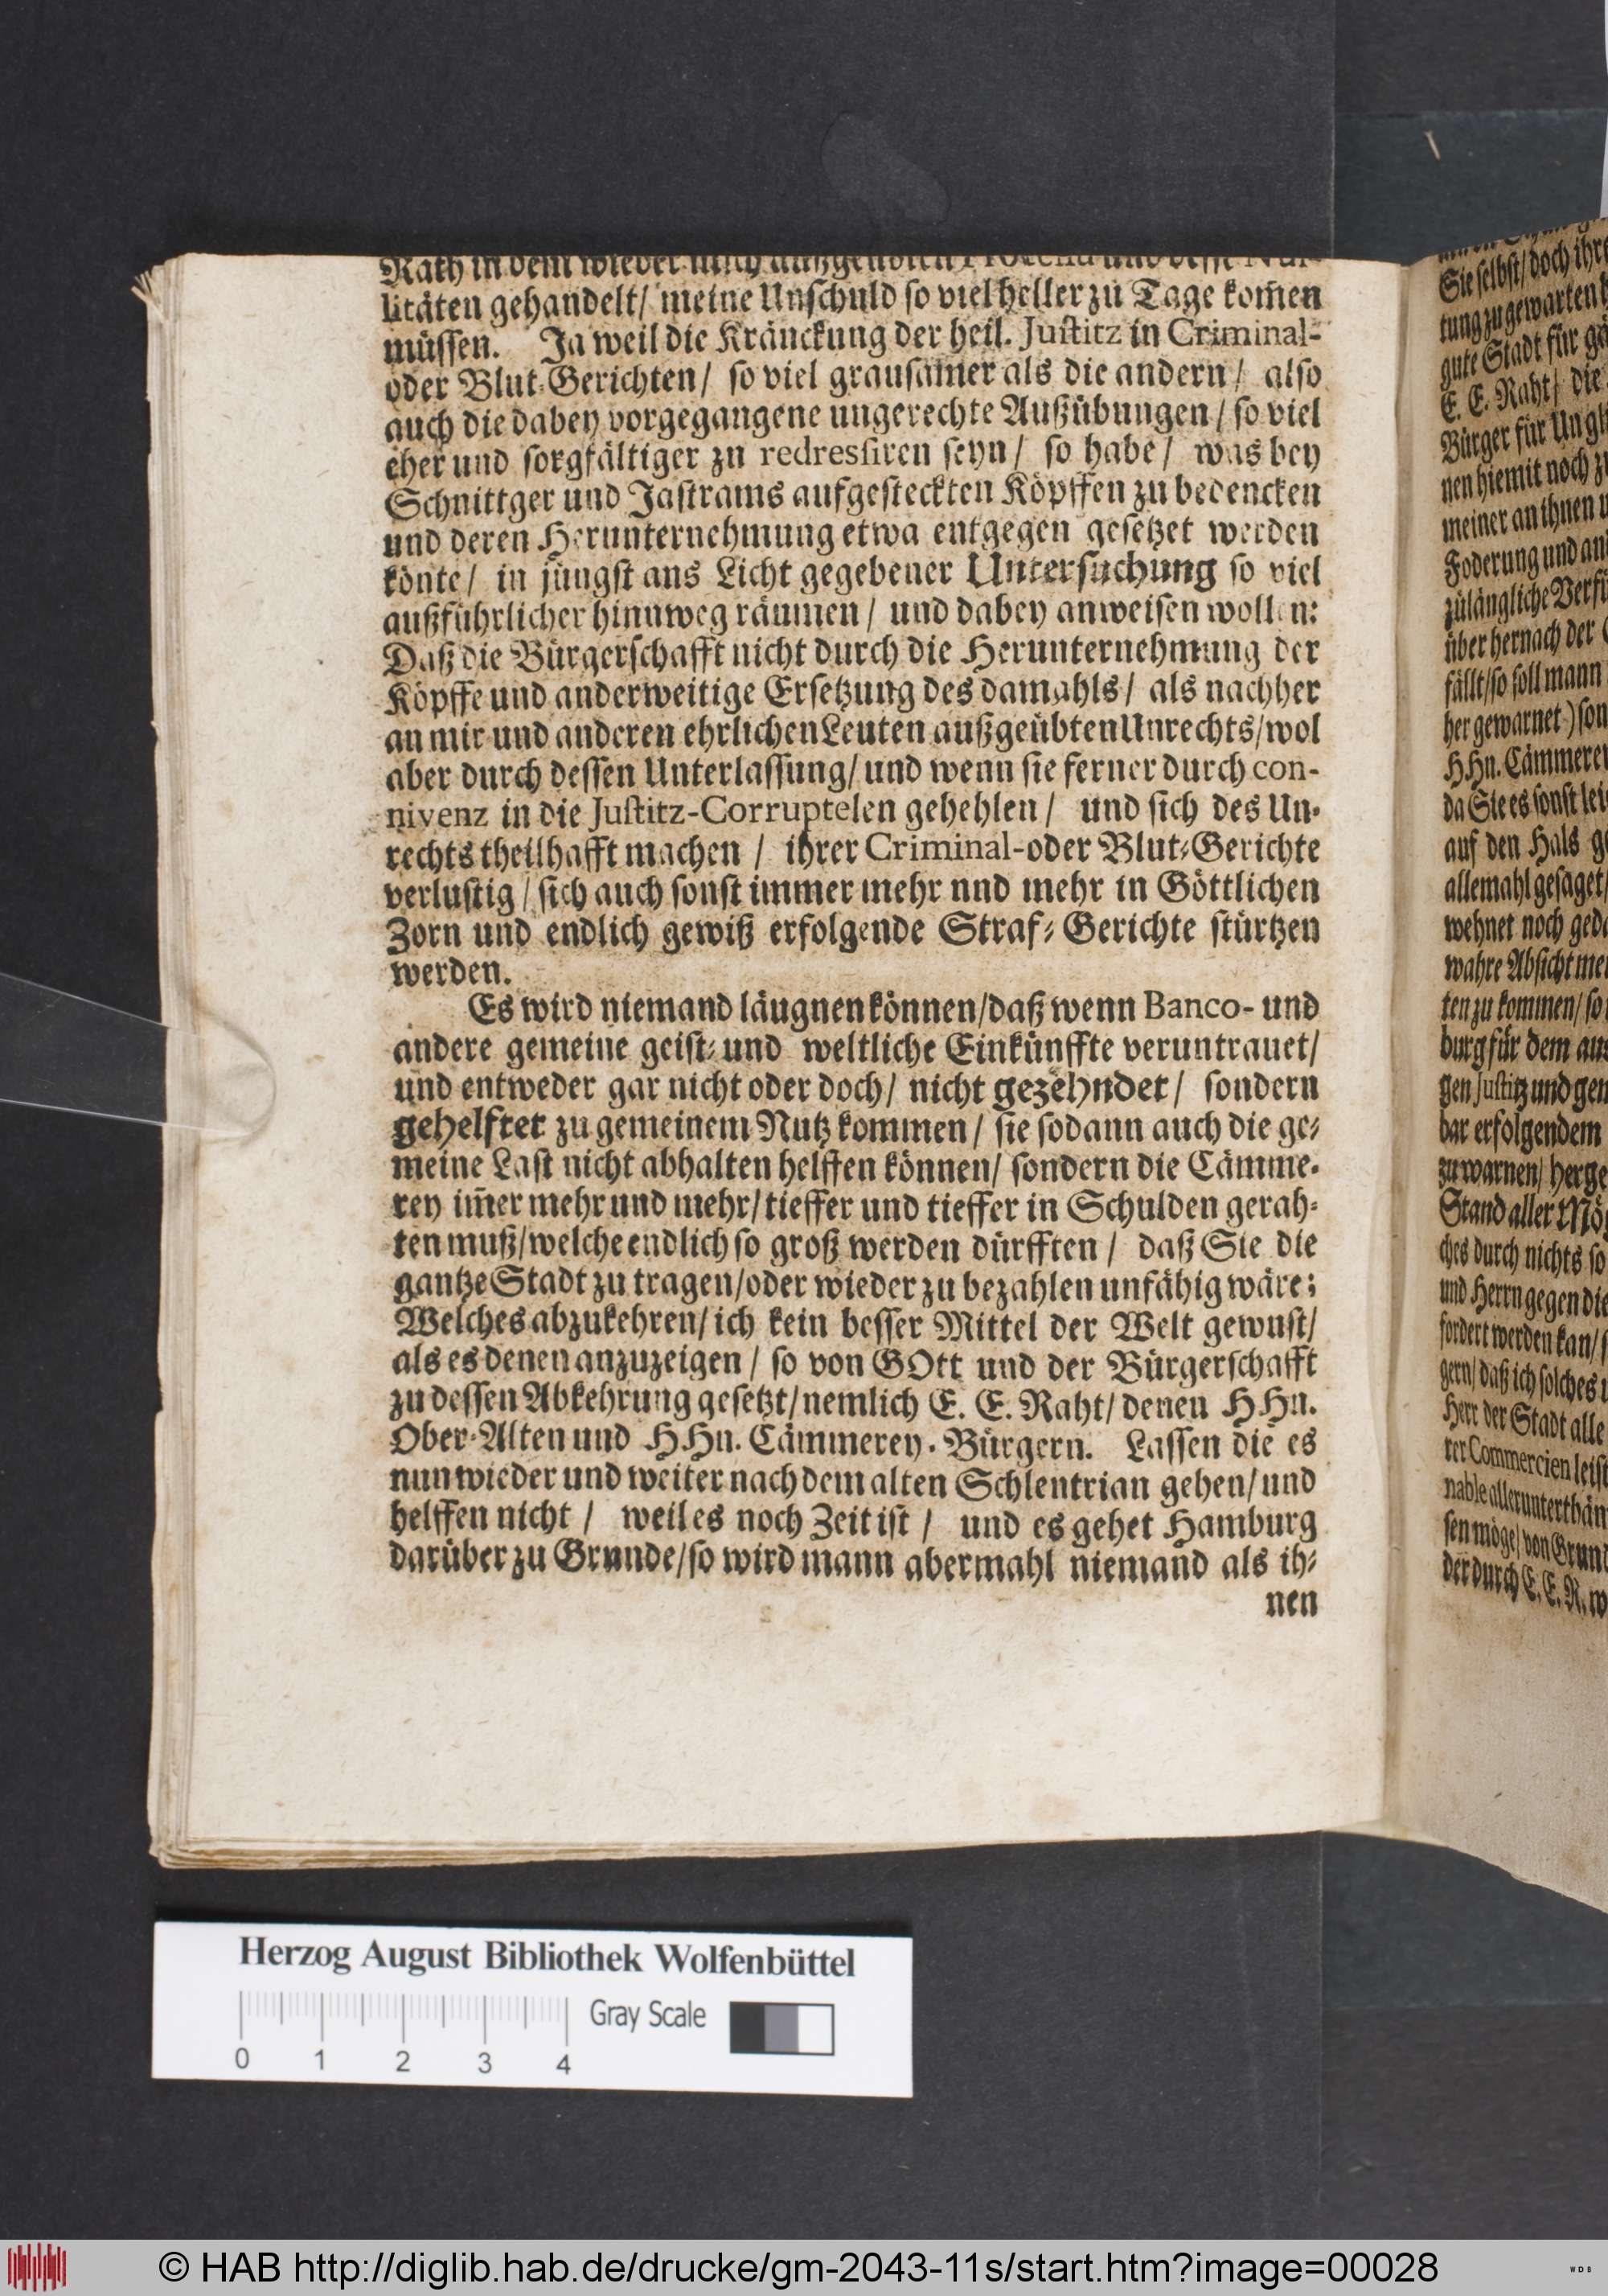 Rath in dem wieder mich außgeübten Process und desse Nul-
litäten gehandelt/ meine Unschuld so viel heller zu Tage kom̃en
müssen. Ja weil die Kränckung der heil. Justitz in Criminal-
oder Blut-Gerichten/ so viel grausamer als die andern/ also
auch die dabey vorgegangene ungerechte Außübungen/ so viel
eher und sorgfältiger zu redressiren seyn/ so habe/ was bey
Schnittger und Jastrams aufgesteckten Köpffen zu bedencken
und deren Herunternehmung etwa entgegen gesetzet werden
könte/ in jüngst ans Licht gegebener Untersuchung so viel
außführlicher hinnweg räumen/ und dabey anweisen wollen:
Daß die Bürgerschafft nicht durch die Herunternehmung der
Köpffe und anderweitige Ersetzung des damahls/ als nachher
an mir und anderen ehrlichen Leuten außgeübten Unrechts/ wol
aber durch dessen Unterlassung/ und wenn sie ferner durch con-
nivenz in die Justitz-Corruptelen gehehlen/ und sich des Un-
rechts theilhafft machen/ ihrer Criminal-oder Blut-Gerichte
verlustig/ sich auch sonst immer mehr nnd mehr in Göttlichen
Zorn und endlich gewiß erfolgende Straf-Gerichte stürtzen
werden.
Es wird niemand läugnen können/ daß wenn Banco- und
andere gemeine geist- und weltliche Einkünffte veruntrauet/
und entweder gar nicht oder doch/ nicht gezehndet/ sondern
gehelftet zu gemeinem Nutz kommen/ sie sodann auch die ge-
meine Last nicht abhalten helffen können/ sondern die Cämme-
rey im̃er mehr und mehr/ tieffer und tieffer in Schulden gerah-
ten muß/ welche endlich so groß werden dürfften/ daß Sie die
gantze Stadt zu tragen/ oder wieder zu bezahlen unfähig wäre;
Welches abzukehren/ ich kein besser Mittel der Welt gewust/
als es denen anzuzeigen/ so von GOtt und der Bürgerschafft
zu dessen Abkehrung gesetzt/ nemlich E. E. Raht/ denen HHn.
Ober-Alten und HHn. Cämmerey-Bürgern. Lassen die es
nun wieder und weiter nach dem alten Schlentrian gehen/ und
helffen nicht/ weil es noch Zeit ist/ und es gehet Hamburg
darüber zu Grunde/ so wird mann abermahl niemand als ih-
nen
Sie selbst/ doch ihre
tung zu gewarten
gute Stadt für
E. E. Raht/ die
Bürger für
nen hiemit noch
meiner an ihnen
Foderung und
zülängliche
über hernach der
fällt/ so soll mann
her gewarnet)
HHn.
da Sie es sonst
auf den Hals
allemahl gesaget/
wehnet noch
wahre Absicht
ten zu kommen/
burg für dem
gen Justitz und
bar erfolgendem
zu warnen/
Stand aller
ches durch nichts so
und Herrn gegen die
fordert werden kan/
gern/ daß ich solches
Herr der Stadt alle
rer Commercien
nable
sen möge/ von
der durch E. E. R.
Herzog August Bibliothek Wolfenbüttel
Gray Scale
0 1 2 3 4
© HAB http://diglib.hab.de/drucke/gm-2043-11s/start.htm?image=00028
WDB